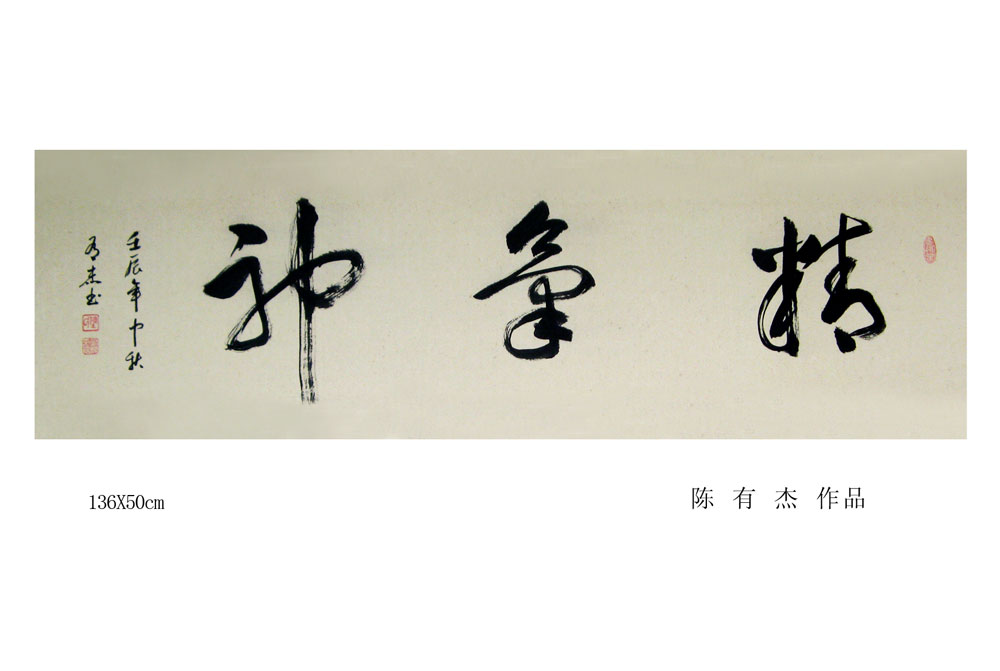 精氣神
壬辰年中秋
有杰书
136X50cm
陈 有 杰 作品